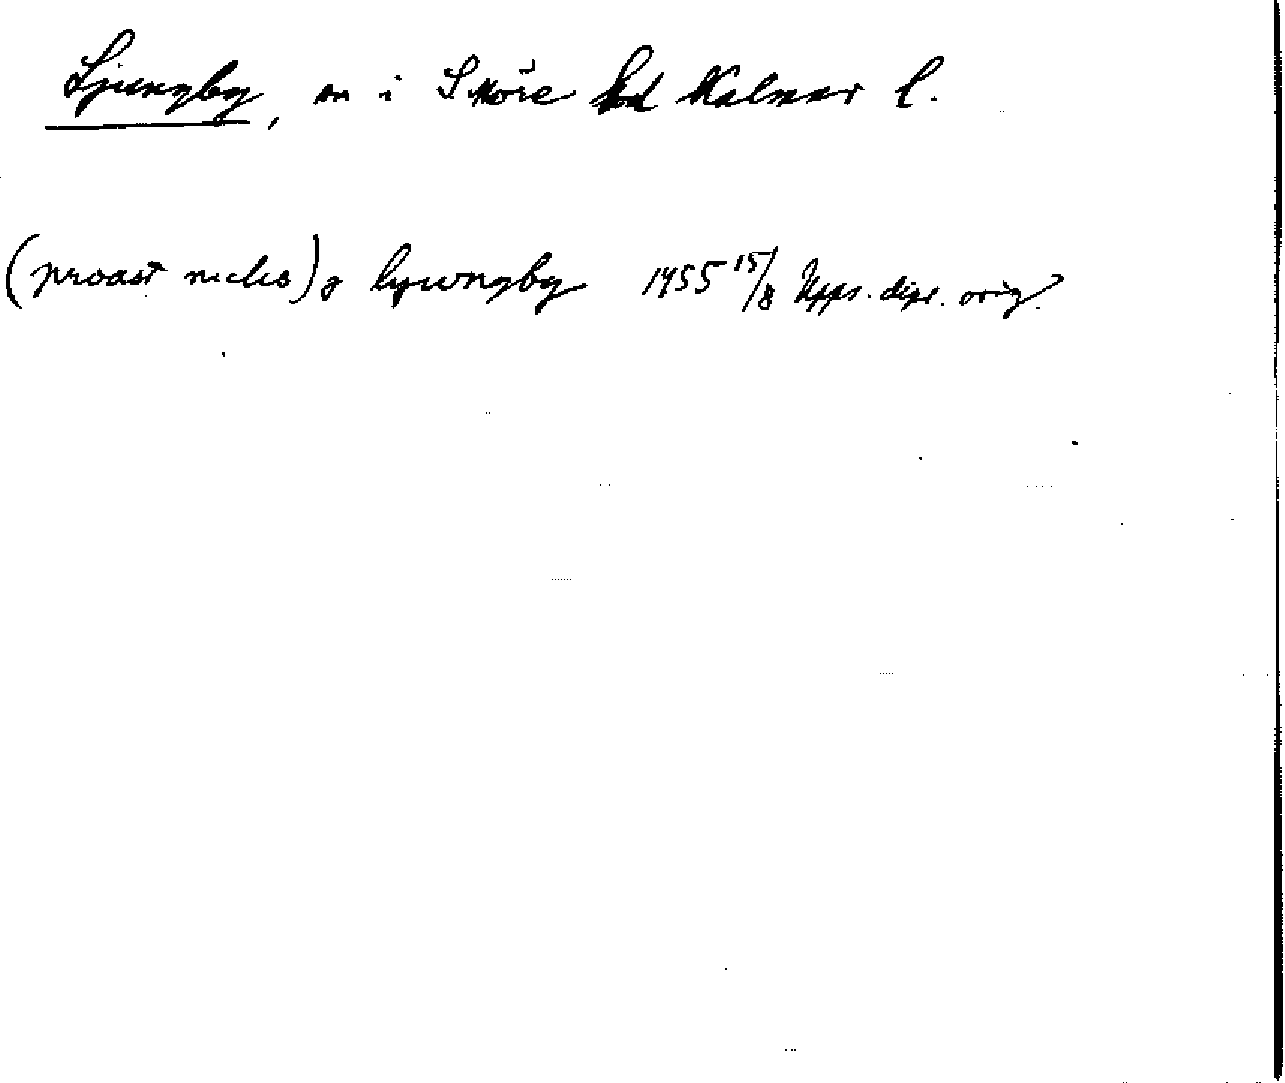 Ljungby, sn i S Möre hd Kalmar l.
(proast niclis) j lywngby 1455 15/8 Upps. dipl. orig.